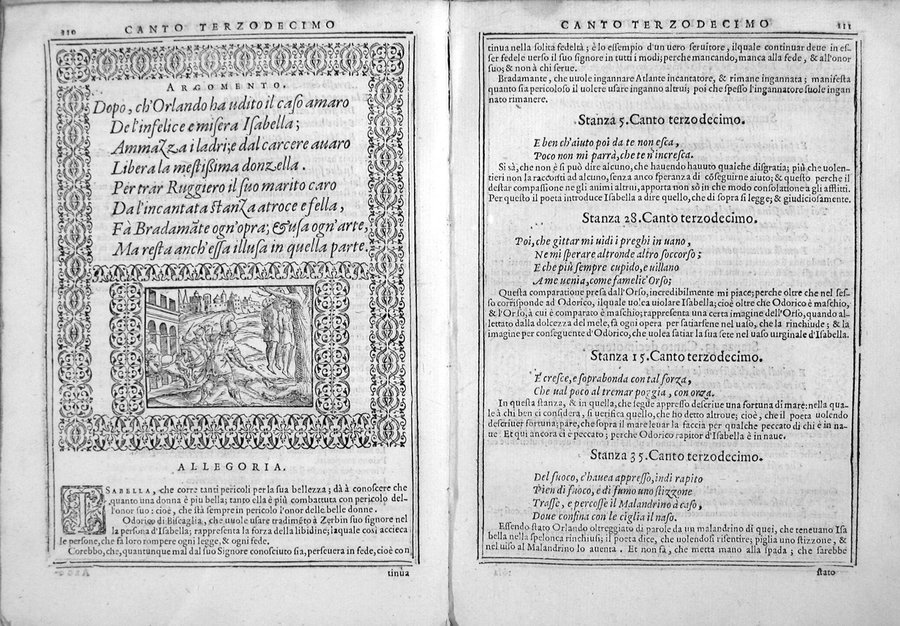 310
CANTO TERZODECIMO
ARGOMENTO.
Dopo, ch'Orlando ha udito il caso amaro
De l'infelice e misera Isabella;
Ammazza i ladri; e dal carcere avaro
Libera la mestissima donzella.
Per trar Ruggiero il suo marito caro
Da l'incantata stanza atroce e fella,
Fà Bradamāte ogn'opra; & usa ogn'arte,
Ma resta anch'essa illusa in quella parte.
ALLEGORIA.
ISABELLA, che corre tanti pericoli per la sua bellezza; dà à conoscere che
quanto una donna è piu bella; tanto ella è più combattuta con pericolo del-
l'onor suo: cioè, che stà sempre in pericolo l'onor delle belle donne.
Odorico di Biscaglia, che uuole usare tradimēto à Zerbin suo signore nel
la persona d'Isabella; rappresenta la forza della libidine; laquale così accieca
le persone, che fa loro rompere ogni legge, & ogni fede.
Corebbo, che, quantunque mal dal suo Signore conosciuto sia, perseuera in fede, cioè con
tinùa
CANTO TERZODECIMO
311
tinua nella solita fedeltà; è lo essempio d'un uero seruitore, ilquale continuar deue in es-
ser fedele uerso il suo signore in tutti i modi; perche mancando, manca alla fede, & all'onor
suo; & non à chi serue.
Bradamante, che uuole ingannare Atlante incantatore, & rimane ingannata; manifesta
quanto sia pericoloso il uolere usare inganno altrui; poi che spesso l'ingannatore suole ingan
nato rimanere.
Stanza 5. Canto terzodecimo.
E ben ch'aiuto poi da te non esca,
Poco non mi parrà, che te n'incresca.
Si sà, che non è si può dire alcuno, che hauendo hauuto qualche disgratia; più che uolen-
tieri non la racconti ad alcuno, senza anco speranza di cōseguirne aiuto; & questo perche il
destar compassione ne gli animi altrui, apporta non sò in che modo consolatione a gli afflitti.
Per questo il poeta introduce Isabella a dire quello, che di sopra si legge; & giudiciosamente.
Stanza 28. Canto terzodecimo.
Poi, che gittar mi uidi i preghi in uano,
Ne mi sperare altronde altro soccorso;
E che più sempre cupido, e uillano
A me uenia, come famelic'Orso;
Questa comparatione presa dall'Orso, incredibilmente mi piace; perche oltre che nel ses-
so corrisponde ad Odorico, ilquale uolea uiolare Isabella; cioè oltre che Odorico è maschio,
& l'Orso, à cui è comparato è maschio; rappresenta una certa imagine dell'Orso, quando al-
lettato dalla dolcezza del mele, fà ogni opera per satiarsene nel uaso, che la rinchiude; & la
imagine per conseguente d'Odorico, che uolea satiar la sua sete nel uaso uirginale d'Isabella.
Stanza 15. Canto terzodecimo.
E cresce, e soprabonda con tal forza,
Che ual poco al tremar poggia, con orza.
In questa stanza, & in quella, che segue appresso descriue una fortuna di mare: nella qua-
le à chi ben ci considera, si uerifica quello, che ho detto altroue; cioè, che il poeta uolendo
descriuer fortuna; pare, che sopra il mare leuar la faccia per qualche peccato di chi è in na-
ue. Et qui ancora ci è peccato; perche Odorico rapitor d'Isabella è in naue.
Stanza 35. Canto terzodecimo.
Del fuoco, c'hauea appresso, indi rapito
Pien di fuoco, e di fumo uno stizzone
Trasse, e percosse il Malandrino à caso,
Doue confina con le ciglia il naso.
Essendo stato Orlando oltreggiato di parole da un malandrino di quei, che teneuano Isa
bella nella spelonca rinchiusi; il poeta dice, che uolendosi risentire; piglia uno stizzone, &
nel uiso al Malandrino lo auenta. Et non fa, che metta mano alla spada; che sarebbe
stato